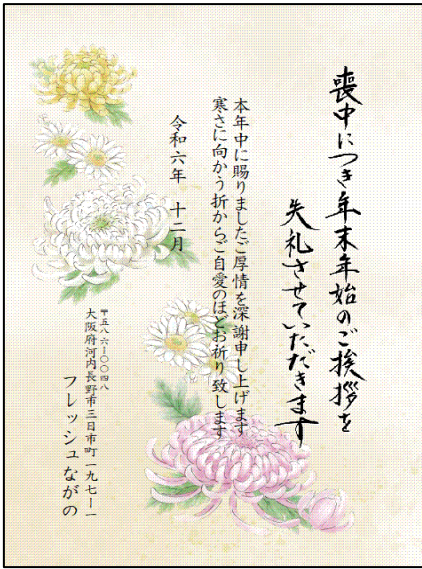 喪中につき年末年始のご挨拶を
失礼させていただきます
本年中に賜りましたご厚情を深謝申し上げます
寒さに向かう折からご自愛のほどお祈り致します
令和六年 十二月
〒五八六―〇〇四八
大阪府河内長野市三日市町一九七―一
フレッシュながの